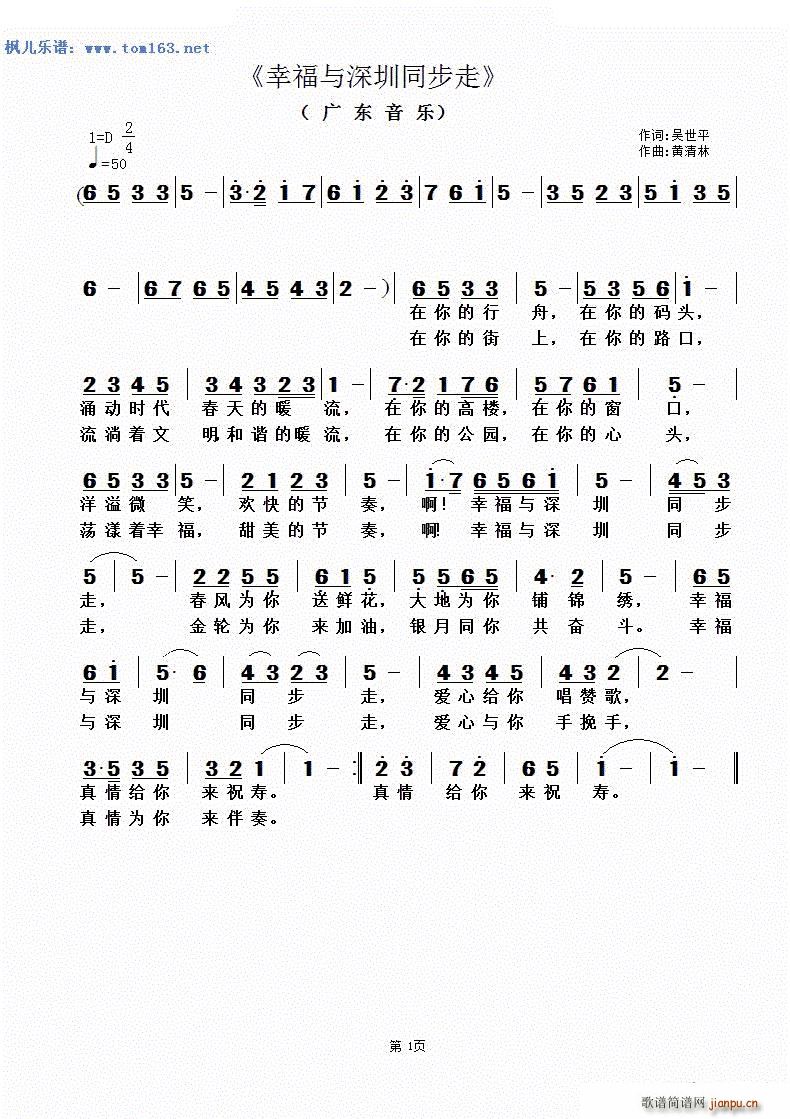 枫儿乐谱：www.tom163.net
《幸福与深圳同步走》
（ 广 东 音 乐）
1=D 2/4
作词:吴世平
♩=50
作曲:黄清林
(6 5 3 3 | 5 － | 3·2 1 7 | 6 1 2 3 | 7 6 1 | 5 － | 3 5 2 3 | 5 1 3 5 |
6 － | 6 7 6 5 | 4 5 4 3 | 2 － ) | 6 5 3 3 | 5 － | 5 3 5 6 | 1 － |
在 你 的 行 舟， 在 你 的 码 头，
在 你 的 街 上， 在 你 的 路 口，
2 3 4 5 | 3 4 3 2 3 | 1 － | 7·2 1 7 6 | 5 7 6 1 | 5 － |
涌 动 时 代 春 天 的 暖 流， 在 你 的 高 楼， 在 你 的 窗 口，
流 淌 着 文 明,和 谐 的 暖 流， 在 你 的 公 园， 在 你 的 心 头，
6 5 3 3 | 5 － | 2 1 2 3 | 5 － | 1·7 6 5 6 1 | 5 － | 4 5 3
洋 溢 微 笑， 欢 快 的 节 奏， 啊！ 幸 福 与 深 圳 同 步
荡 漾 着 幸 福， 甜 美 的 节 奏， 啊! 幸 福 与 深 圳 同 步
5 | 5 － | 2 2 5 5 | 6 1 5 | 5 5 6 5 | 4· 2 | 5 － | 6 5
走， 春 风 为 你 送 鲜 花， 大 地 为 你 铺 锦 绣， 幸 福
走， 金 轮 为 你 来 加 油， 银 月 同 你 共 奋 斗。 幸 福
6 1 | 5· 6 | 4 3 2 3 | 5 － | 4 3 4 5 | 4 3 2 | 2 － |
与 深 圳 同 步 走， 爱 心 给 你 唱 赞 歌，
与 深 圳 同 步 走， 爱 心 与 你 手 挽 手，
3·5 3 5 | 3 2 1 | 1 － :‖ 2 3 | 7 2 | 6 5 | 1 － | 1 － ‖
真 情 给 你 来 祝 寿。 真 情 给 你 来 祝 寿。
真 情 为 你 来 伴 奏。
第 1页
歌谱简谱网 jianpu.cn